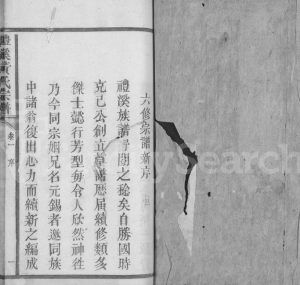 六修宗譜新序
禮溪族譜

自勝國時
克己公創立草譜歷屆續修類多
傑士懿行芳型每令人欣然神往
乃今同宗姻兄名元錫者邀同族
中諸翁復出心力而續新之編成
禮溪黃氏宗譜
卷一
序
一
MySearch